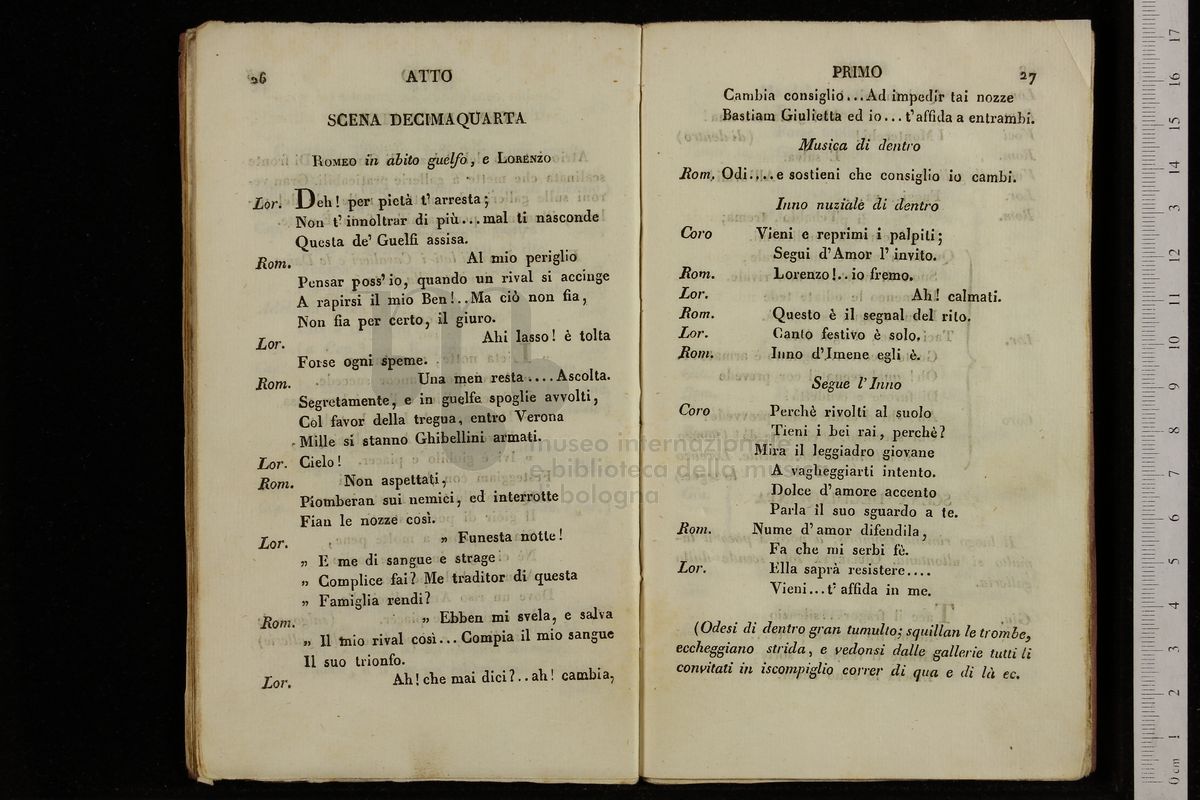 26 ATTO
SCENA DECIMAQUARTA
ROMEO in abito guelfo, e LORENZO
Lor. Deh! per pietà t' arresta;
Non t' innoltrar di più...mal ti nasconde
Questa de' Guelfi assisa.
Rom. Al mio periglio
Pensar poss' io, quando un rival si accinge
A rapirsi il mio Ben!..Ma ciò non fia,
Non fia per certo, il giuro.
Lor. Ahi lasso! è tolta
Forse ogni speme.
Rom. Una men resta....Ascolta.
Segretamente, e in guelfe spoglie avvolti,
Col favor della tregua, entro Verona
Mille si stanno Ghibellini armati.
Lor. Cielo!
Rom. Non aspettati,
Piomberan sui nemici, ed interrotte
Fian le nozze così.
Lor. „ Funesta notte!
„ E me di sangue e strage
„ Complice fai? Me traditor di questa
„ Famiglia rendi?
Rom. „ Ebben mi svela, e salva
„ Il mio rival così... Compia il mio sangue
Il suo trionfo.
Lor. Ah! che mai dici?..ah! cambia,
PRIMO 27
Cambia consiglio...Ad impedir tai nozze
Bastiam Giulietta ed io... t'affida a entrambi.
Musica di dentro
Rom. Odi....e sostieni che consiglio io cambi.
Inno nuziale di dentro
Coro Vieni e reprimi i palpiti;
Segui d'Amor l' invito.
Rom. Lorenzo!..io fremo.
Lor. Ah! calmati.
Rom. Questo è il segnal del rito.
Lor. Canto festivo è solo.
Rom. Inno d'Imene egli è.
Segue l'Inno
Coro Perchè rivolti al suolo
Tieni i bei rai, perchè?
Mira il leggiadro giovane
A vagheggiarti intento.
Dolce d'amore accento
Parla il suo sguardo a te.
Rom. Nume d'amor difendila,
Fa che mi serbi fè.
Lor. Ella saprà resistere....
Vieni...t' affida in me.
(Odesi di dentro gran tumulto; squillan le trombe,
eccheggiano strida, e vedonsi dalle gallerie tutti li
convitati in iscompiglio correr di qua e di là ec.
museo internazionale
e biblioteca della musica
di bologna
0 cm 1 2 3 4 5 6 7 8 9 10 11 12 13 14 15 16 17